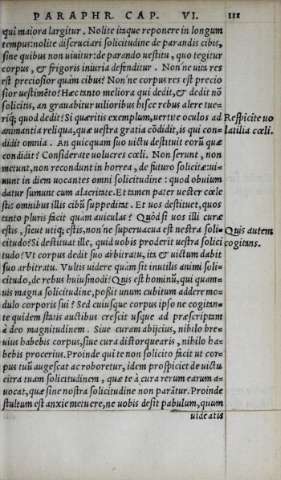 PARAPHR CAP. VI. 111
qui maiora largitur. Nolite itaque reponere in longum
tempus: nolite discruciari solicitudine de parandis cibis,
sine quibus non uiuitur: de parando uestitu, quo tegitur
corpus, & frigoris iniuria defenditur. Non'ne cara res
est preciosior quàm cibus? Non'ne corpus res est precio
sior uestimẽto? Hæc tanto meliora qui dedit, & dedit nõ
solicitis, an grauabitur uilioribus hisce rebus alere tue-
riq; quod dedit? Si quæritis exemplum, uertite oculos ad
animantia reliqua, quæ uestra gratia cõdidit, is qui con-
didit omnia. An quicquam suo uictu destituit eorũ quæ
condidit? Considerate uolucres cœli. Non serunt, non
metunt, non recondunt in horrea, de futuro solicitæ: ui-
uunt in diem uacantes omni solicitudine: quod obuium
datur sumunt cum alacritate. Et tamen pater uester cœle
stis omnibus illis cibũ suppeditat. Et uos destituet, quos
tanto pluris facit quàm auiculas? Quòd si uos illi curæ
estis, sicut utiq; estis, non'ne superuacua est uestra soli-
citudo? Si destituat ille, quid uobis proderit uestra solici
tudo? Vt corpus dedit suo arbitratu, ita & uictum dabit
suo arbitratu. Vultis uidere quàm sit inutilis animi soli-
citudo, de rebus huiusmodi? Quis est hominũ, qui quam-
uis magna solicitudine, possit unum cubitum addere mo-
dulo corporis sui? Sed cuiusque corpus ipso ne cogitan-
te quidem statis auctibus crescit usque ad præscriptam
à deo magnitudinem. Siue curam abijcias, nihilo bre-
uius habebis corpus, siue cura distorquearis, nihilo ha-
bebis procerius. Proinde qui te non solicito facit ut cor-
pus tuũ augescat ac roboretur, idem prospiciet de uictu
citra tuam solicitudinem, quæ te à cura rerum earum a-
uocat, quæ sine nostra solicitudine non parãtur. Proinde
stultum est anxiè metuere, ne uobis desit pabulum, quum
uideatis
Respicite uo
latilia cœli.
Quis autem
cogitans.